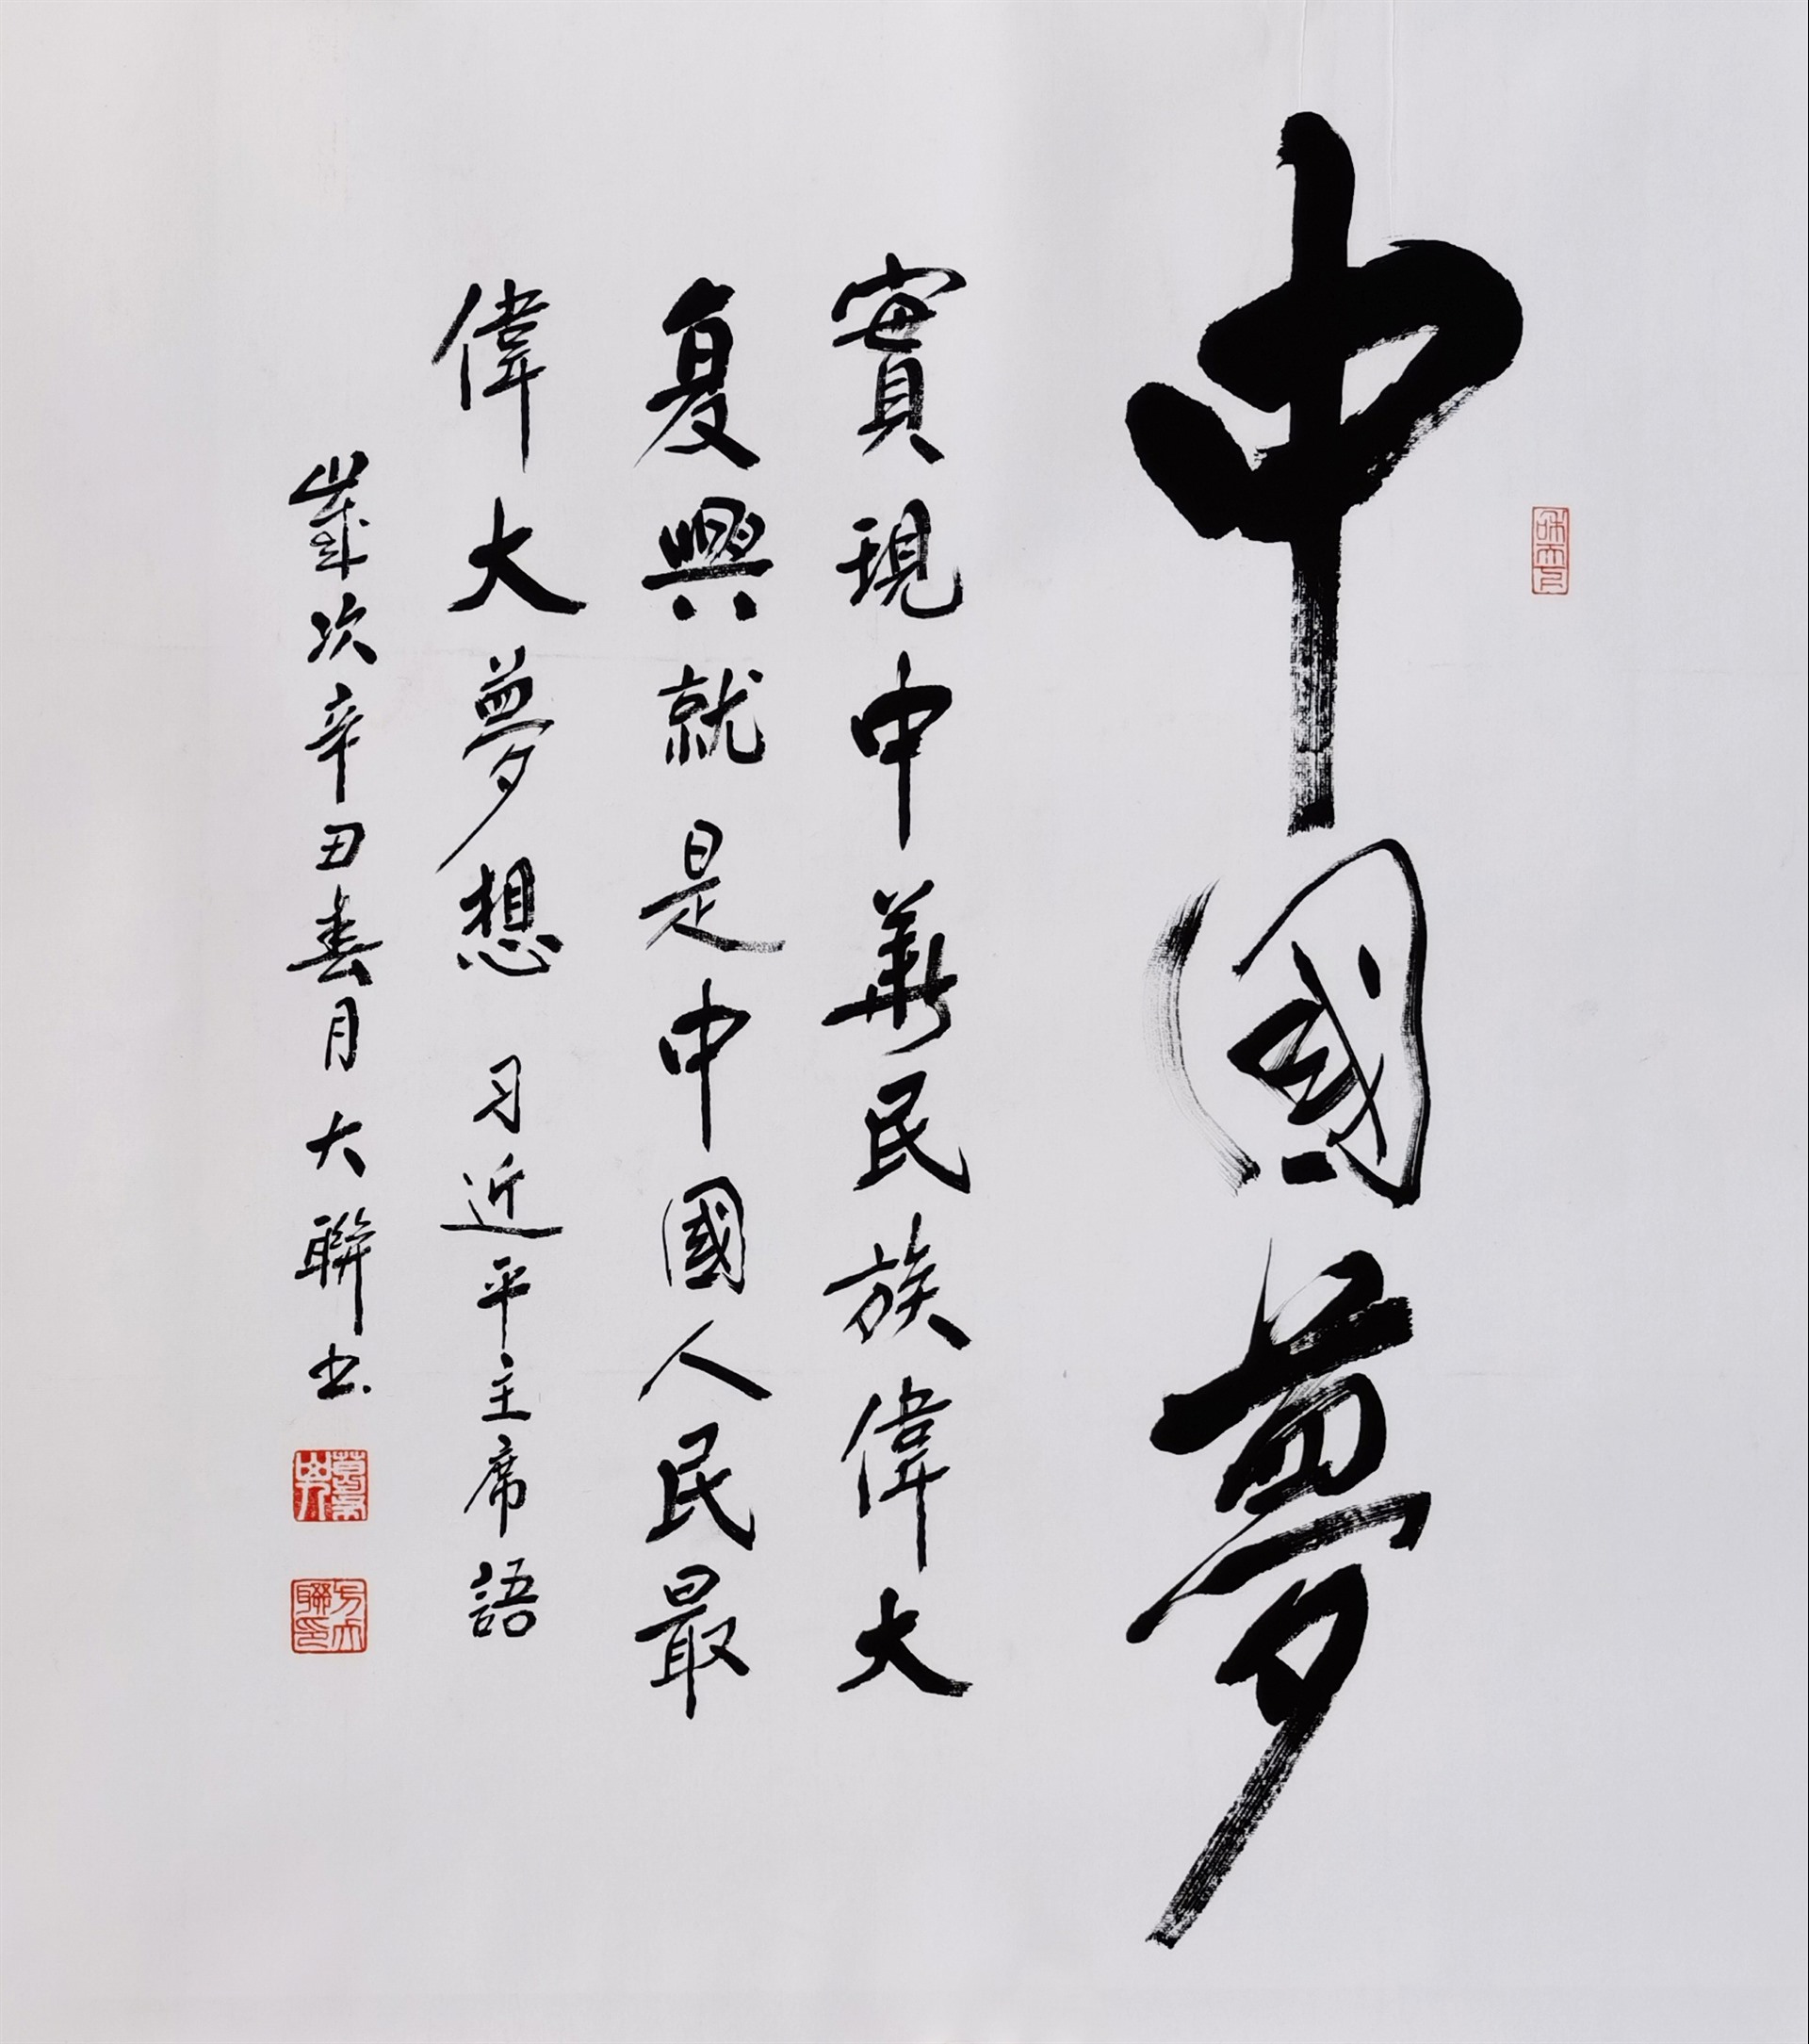 中國夢
實現中華民族偉大
复興就是中國人民最
偉大夢想 习近平主席語
歲次辛丑春月大聯书